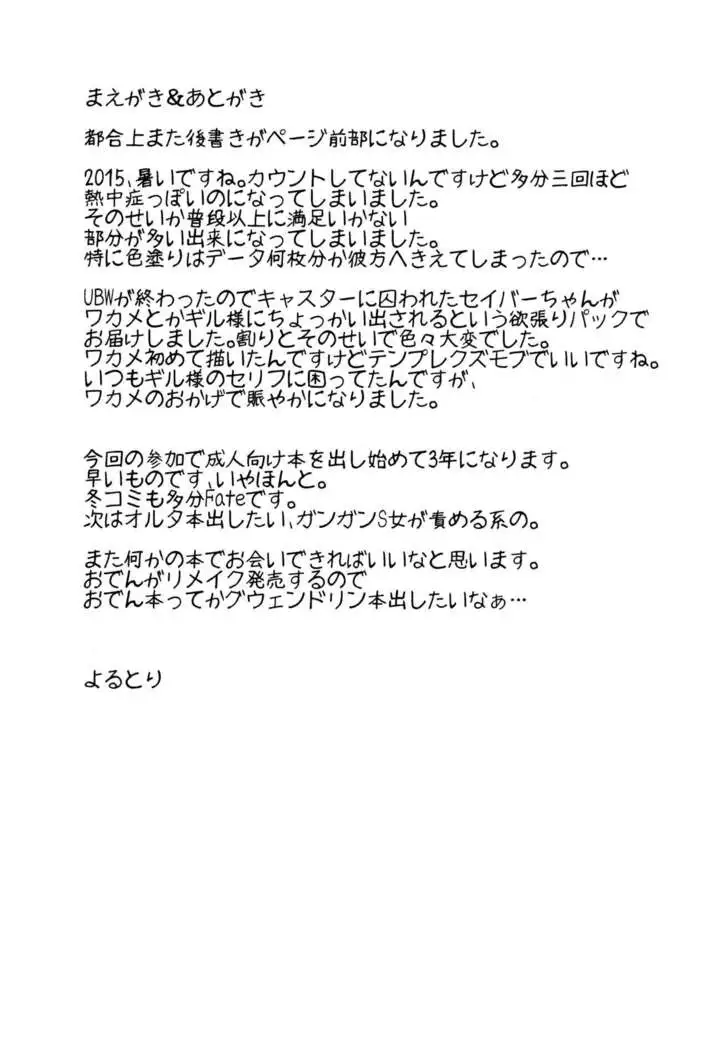 まえがき&あとがき
都合上また後書きがページ前部になりました。
2015、暑いですね。カウントしてないんですけど多分三回ほど
熱中症っぽいのになってしまいました。
そのせいか普段以上に満足いかない
部分が多い出来になってしまいました。
特に色塗りはデータ何枚分か彼方へきえてしまったので…
UBWが終わったのでキャスターに囚われたセイバーちゃんが
ワカメとかギル様にちょっかい出されるという欲張りパックで
お届けしました。割りとそのせいで色々大変でした。
ワカメ初めて描いたんですけどテンプレクズモブでいいですね。
いつもギル様のセリフに困ってたんですが、
ワカメのおかげで賑やかになりました。
今回の参加で成人向け本を出し始めて3年になります。
早いものです、いやほんと。
冬コミも多分Fateです。
次はオルタ本出したい、ガンガンS女が責める系の。
また何かの本でお会いできればいいなと思います。
おでんがリメイク発売するので
おでん本ってかグウェンドリン本出したいなぁ…
よるとり